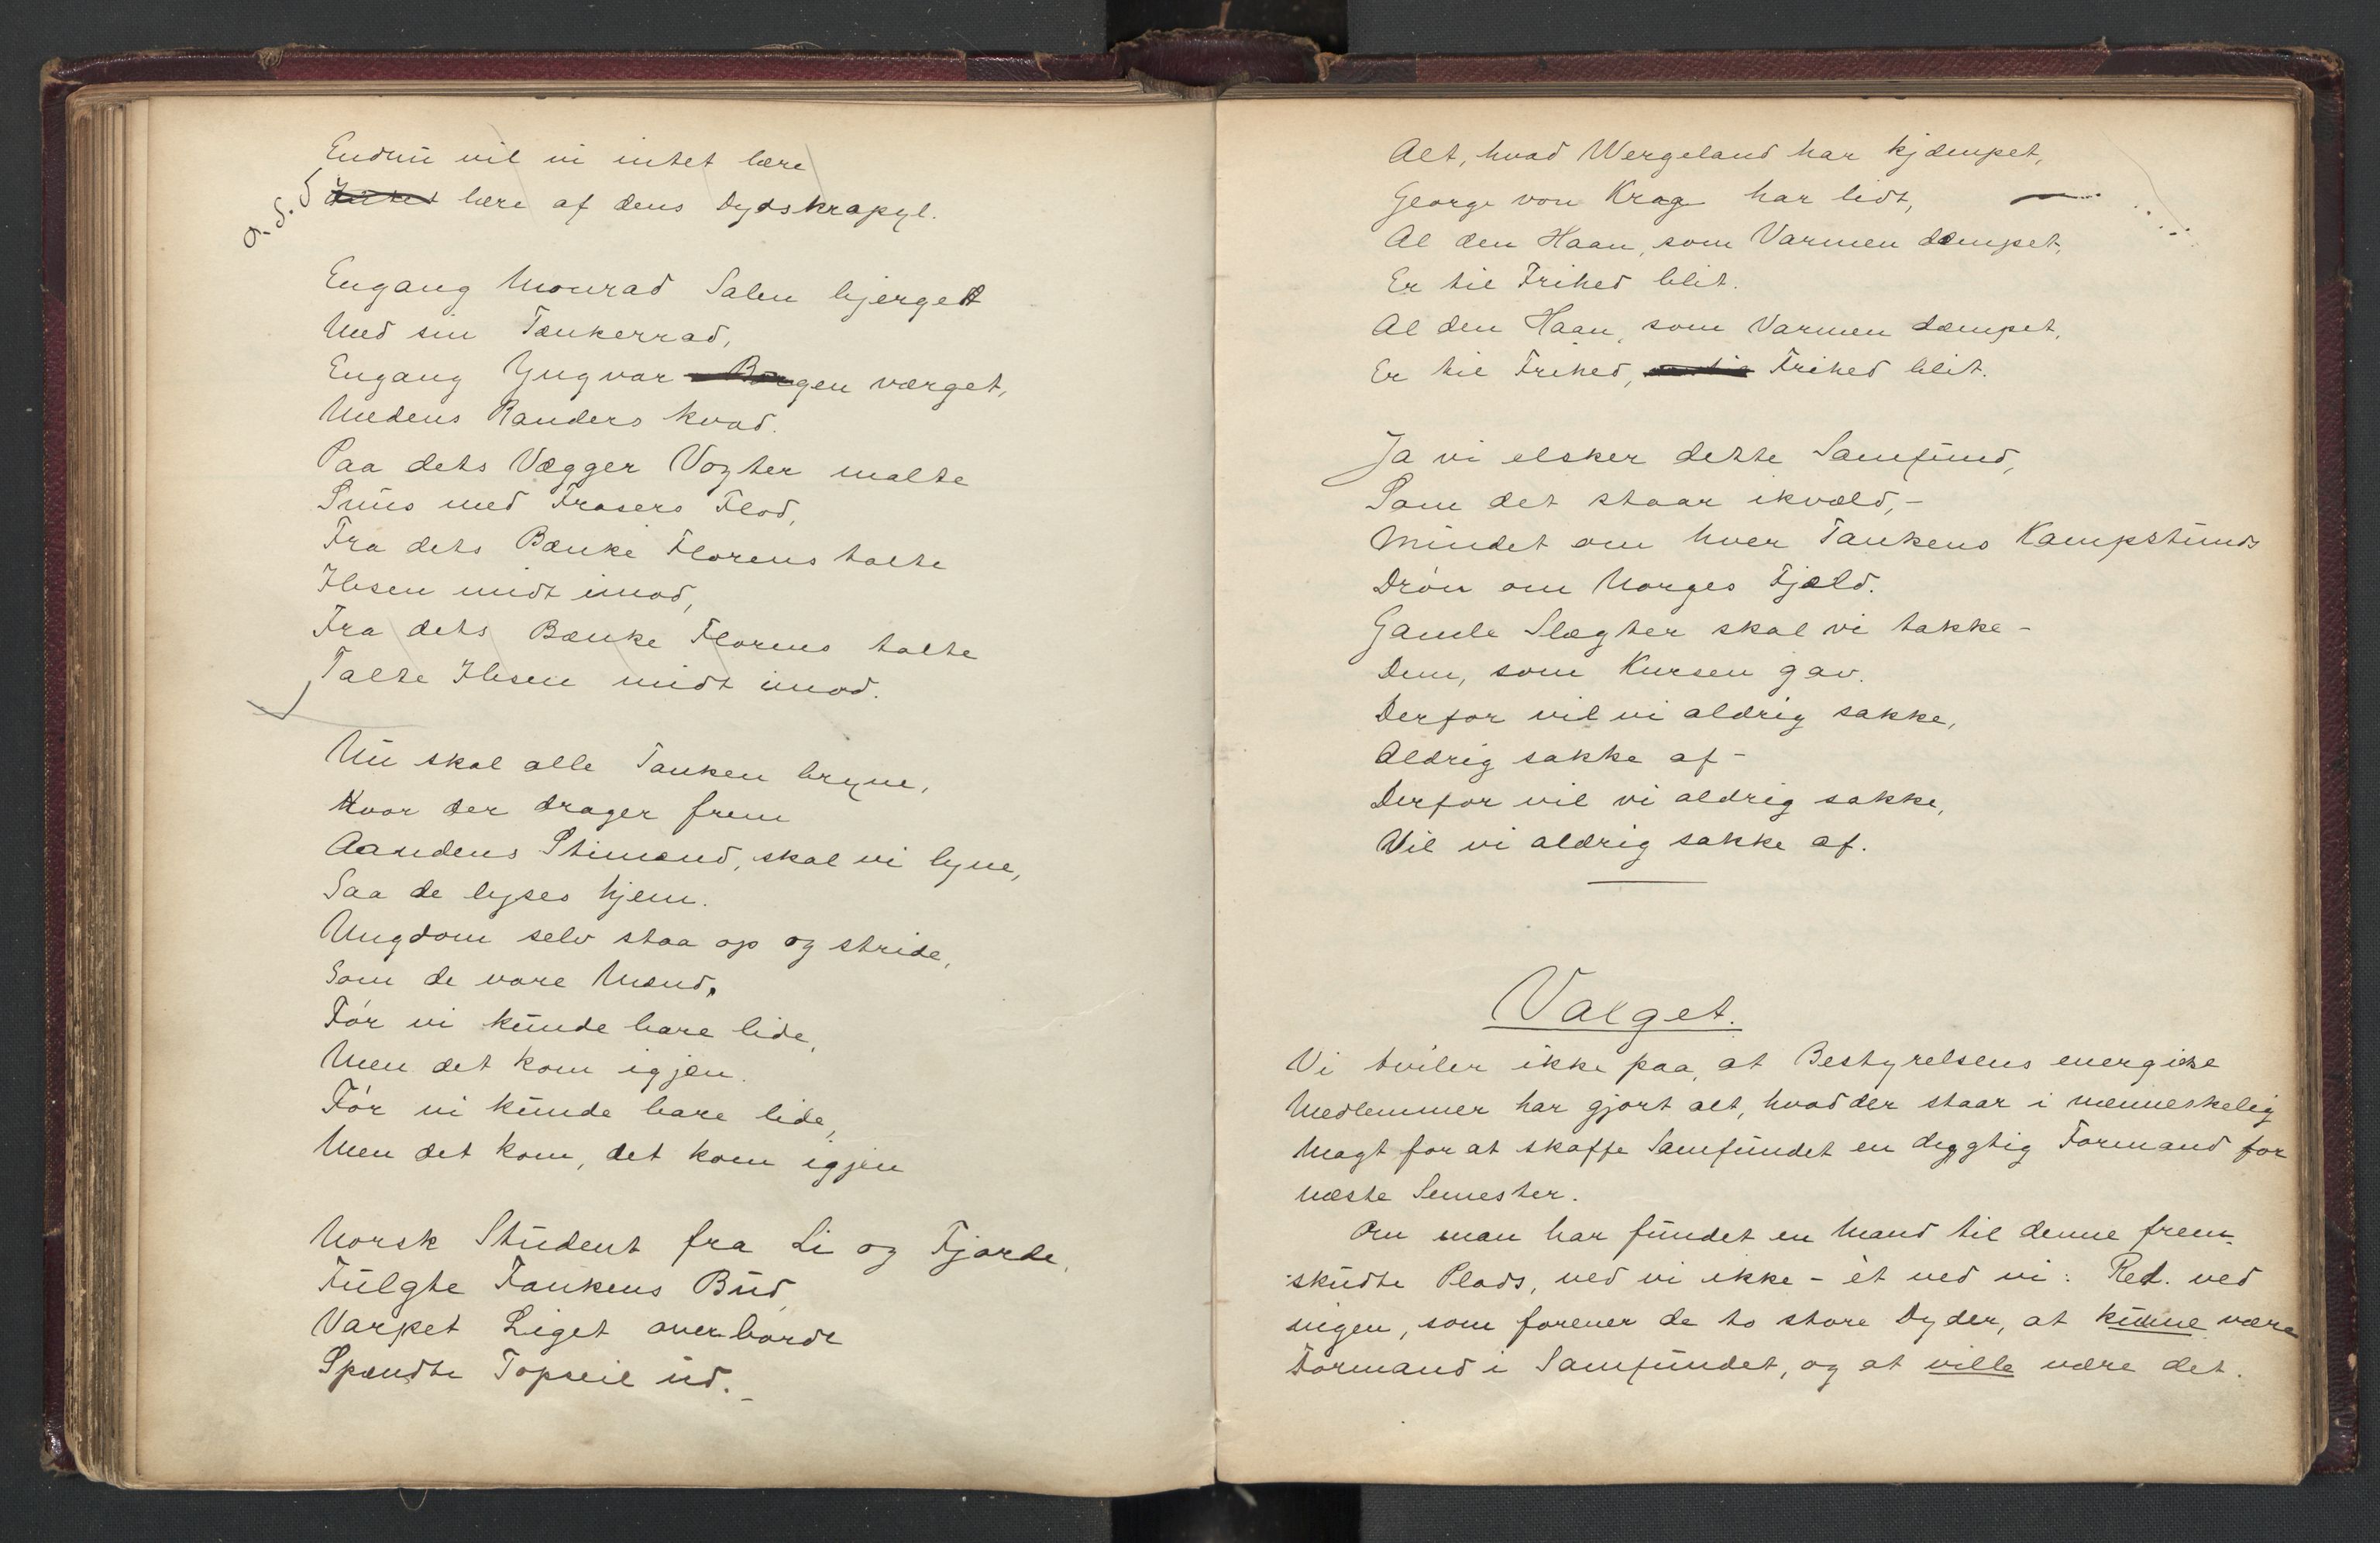 Endnu vil vi intet lære
o. s. s lære af dens Dydskrapyl.
Engang Monrad Salen bjerget
Med sin Tankerrad,
Engang Yngvar Borgen værget,
Medens Randers kvad.
Paa dets Vægger Vogter malte
Snus med Frasers Flod,
Fra dets Bænke Florens talte
Ibsen midt imod,
Fra dets Bænke Florens talte
Talte Ibsen midt imod.
Nu skal alle Tanken bryne,
Hvor der drager frem
Aandens Stimænd, skal vi lyne,
Saa de lyses hjem.
Ungdom selv staa op og stride,
Som de vare Mænd.
Før vi kunde bare lide,
Men det kom igjen.
Før vi kunde bare lide,
Men det kom, det kom igjen
Norsk Student fra Li og Fjorde,
Fulgte Tankens Bud,
Varpet Liget overborde
Spændte Topseil ud.
Alt, hvad Wergeland har kjæmpet,
George von Krag har lidt,
Al den Haan, som Varmen dæmpet,
Er til Frihed blit.
Al den Haan, som Varmen dæmpet,
Er til Frihed, Frihed blit.
Ja vi elsker dette Samfund,
Som det staar ikvæld,-
Mindet om hver Tankens Kampstund
Drøn om Norges Fjæld.
Gamle Slægter skal vi takke -
Dem, som Kursen gav.
Derfor vil vi aldrig sakke,
Aldrig sakke af -
Derfor vil vi aldrig sakke,
Vil vi aldrig sakke af.
Valget.
Vi tviler ikke paa, at Bestyrelsens energiske
Medlemmer har gjort alt, hvad der staar i menneskelig
Magt for at skaffe Samfundet en dygtig Formand for
næste Semester.
Om man har fundet en Mand til denne frem-
skudte Plads, ved vi ikke - èt ved vi: Red. ved
ingen, som forener de to store Dyder, at kunne være
Formand i Samfundet, og at ville være det.